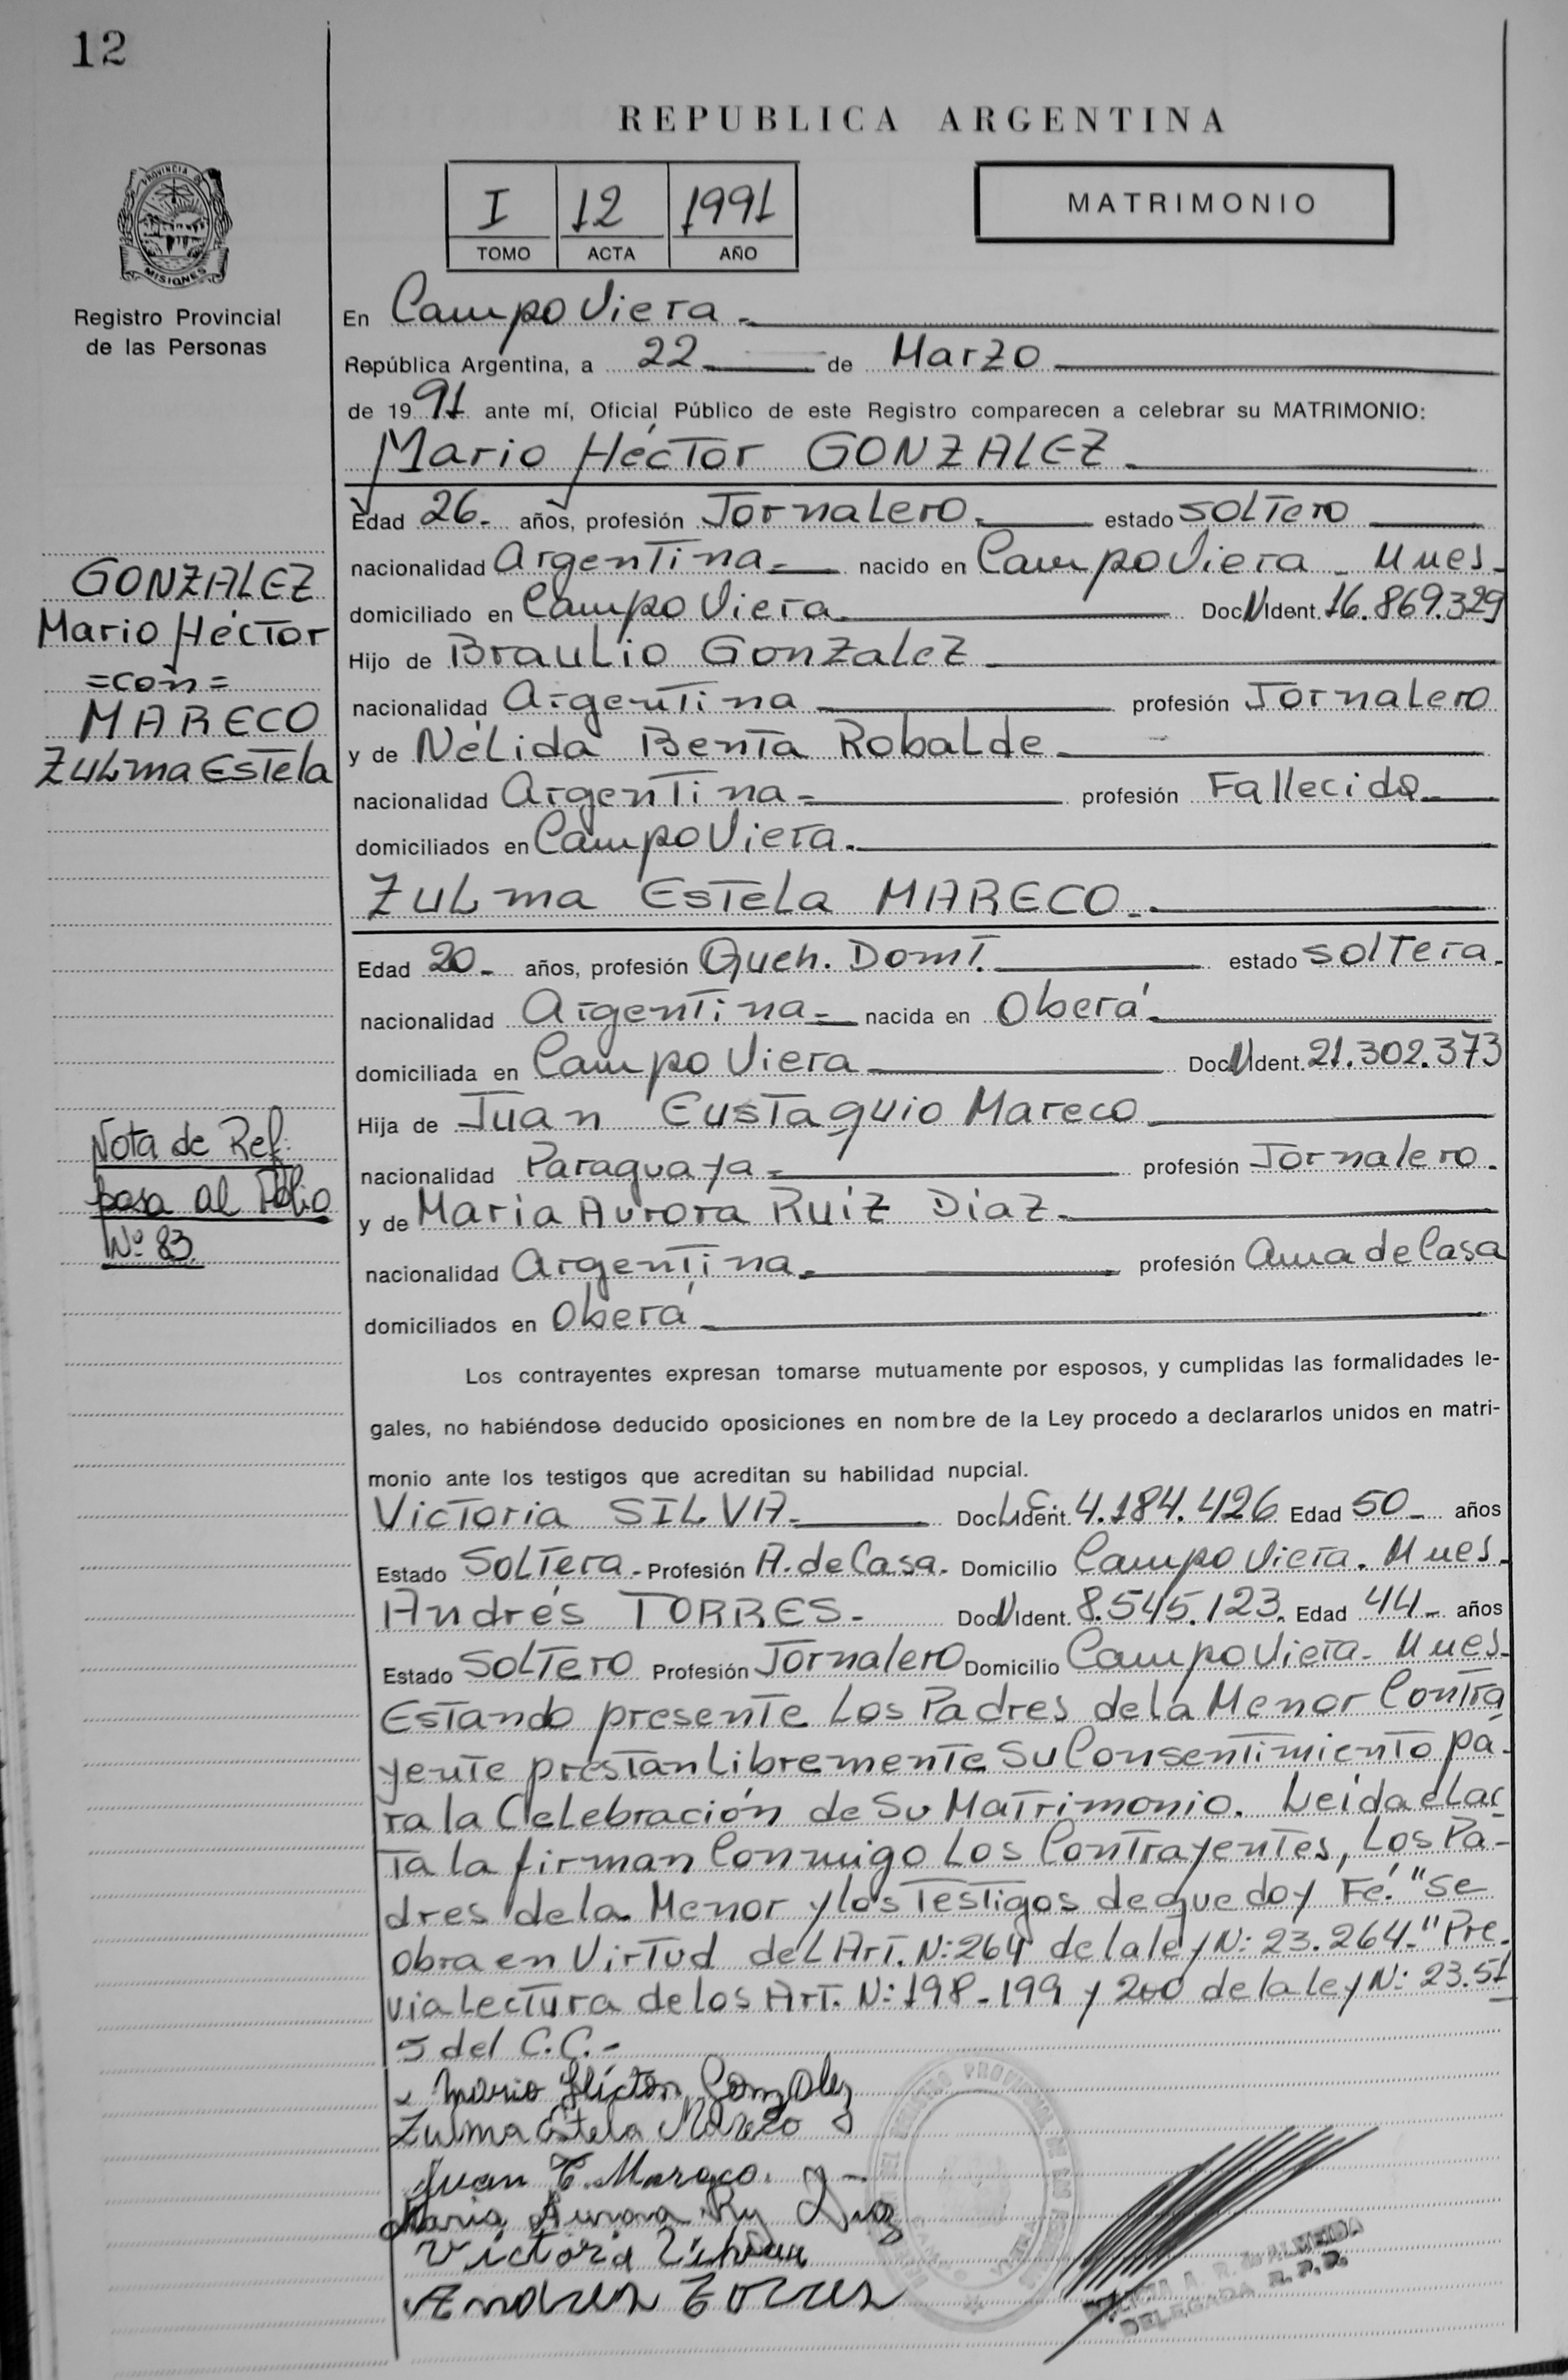 12
REPUBLICA ARGENTINA
I 12 1991
TOMO ACTA AÑO
MATRIMONIO
PROVINCIA DE
MISIONES
Registro Provincial
de las Personas
En Campo Viera.
República Argentina, a 22 de Marzo
de 1991 ante mí, Oficial Público de este Registro comparecen a celebrar su MATRIMONIO:
Mario Héctor GONZALEZ.
Edad 26- años, profesión Jornalero. estado soltero
nacionalidad Argentina- nacido en Campo Viera - Mnes-
domiciliado en Campo Viera. Doc N Ident. 16.869.329
Hijo de Braulio Gonzalez
nacionalidad Argentina profesión Jornalero
y de Nélida Benta Robalde
nacionalidad Argentina- profesión Fallecida
domiciliados en Campo Viera.
Zulma Estela MARECO.-
Edad 20- años, profesión Queh. Domt. estado soltera.
nacionalidad Argentina- nacida en Oberá.
domiciliada en Campo Viera Doc N Ident. 21.302.373
Hija de Juan Eustaquio Mareco
nacionalidad Paraguaya- profesión Jornalero.
y de Maria Aurora Ruiz Diaz.
nacionalidad Argentina. profesión Ama de Casa
domiciliados en Oberá
GONZALEZ
Mario Héctor
=con=
MARECO
Zulma Estela
Nota de Ref.
pasa al Folio
Nº 83.
Los contrayentes expresan tomarse mutuamente por esposos, y cumplidas las formalidades le-
gales, no habiéndose deducido oposiciones en nombre de la Ley procedo a declararlos unidos en matri-
monio ante los testigos que acreditan su habilidad nupcial.
Victoria SILVA- Doc LC Ident. 4.184.426 Edad 50- años
Estado Soltera.- Profesión A. de Casa. Domicilio Campo Viera. Mnes.
Andrés TORRES- Doc N Ident. 8.545.123. Edad 44- años
Estado Soltero Profesión Jornalero Domicilio Campo Viera- Mnes-
Estando presente Los Padres de la Menor Contra
yente prestan Libremente Su Consentimiento pa-
ra la Celebración de Su Matrimonio. Leida el ac
ta la firman Conmigo Los Contrayentes, Los Pa-
dres de la Menor y los Testigos de que doy Fé. "Se
obra en Virtud del Art. N: 264 de la ley N: 23.264-" Pre.
via Lectura de los Art. N: 198-199 y 200 de la ley N: 23.51
5 del C.C.-
Mario Héctor Gonzalez
Zulma Estela Mareco
Juan E. Mareco.
Maria Aurora Ruy Diaz
Victoria
Andres Torres
R. de ALMEIDA
DELEGADA R. P. P.